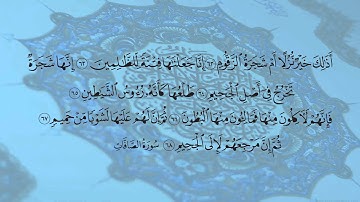 أَذَٰلِكَ خَيْرٌ نُّزُلًا أَمْ شَجَرَةُ ٱلزَّقُّومِ ٦٢ إِنَّا جَعَلْنَٰهَا فِتْنَةً لِّلظَّٰلِمِينَ ٦٣ إِنَّهَا شَجَرَةٌ
تَخْرُجُ فِىٓ أَصْلِ ٱلْجَحِيمِ ٦٤ طَلْعُهَا كَأَنَّهُۥ رُءُوسُ ٱلشَّيَٰطِينِ ٦٥
فَإِنَّهُمْ لَءَاكِلُونَ مِنْهَا فَمَالِـُٔونَ مِنْهَا ٱلْبُطُونَ ٦٦ ثُمَّ إِنَّ لَهُمْ عَلَيْهَا لَشَوْبًا مِّنْ حَمِيمٍ ٦٧
ثُمَّ إِنَّ مَرْجِعَهُمْ لَإِلَى ٱلْجَحِيمِ ٦٨ سُورَةُ الصَّافَّاتِ